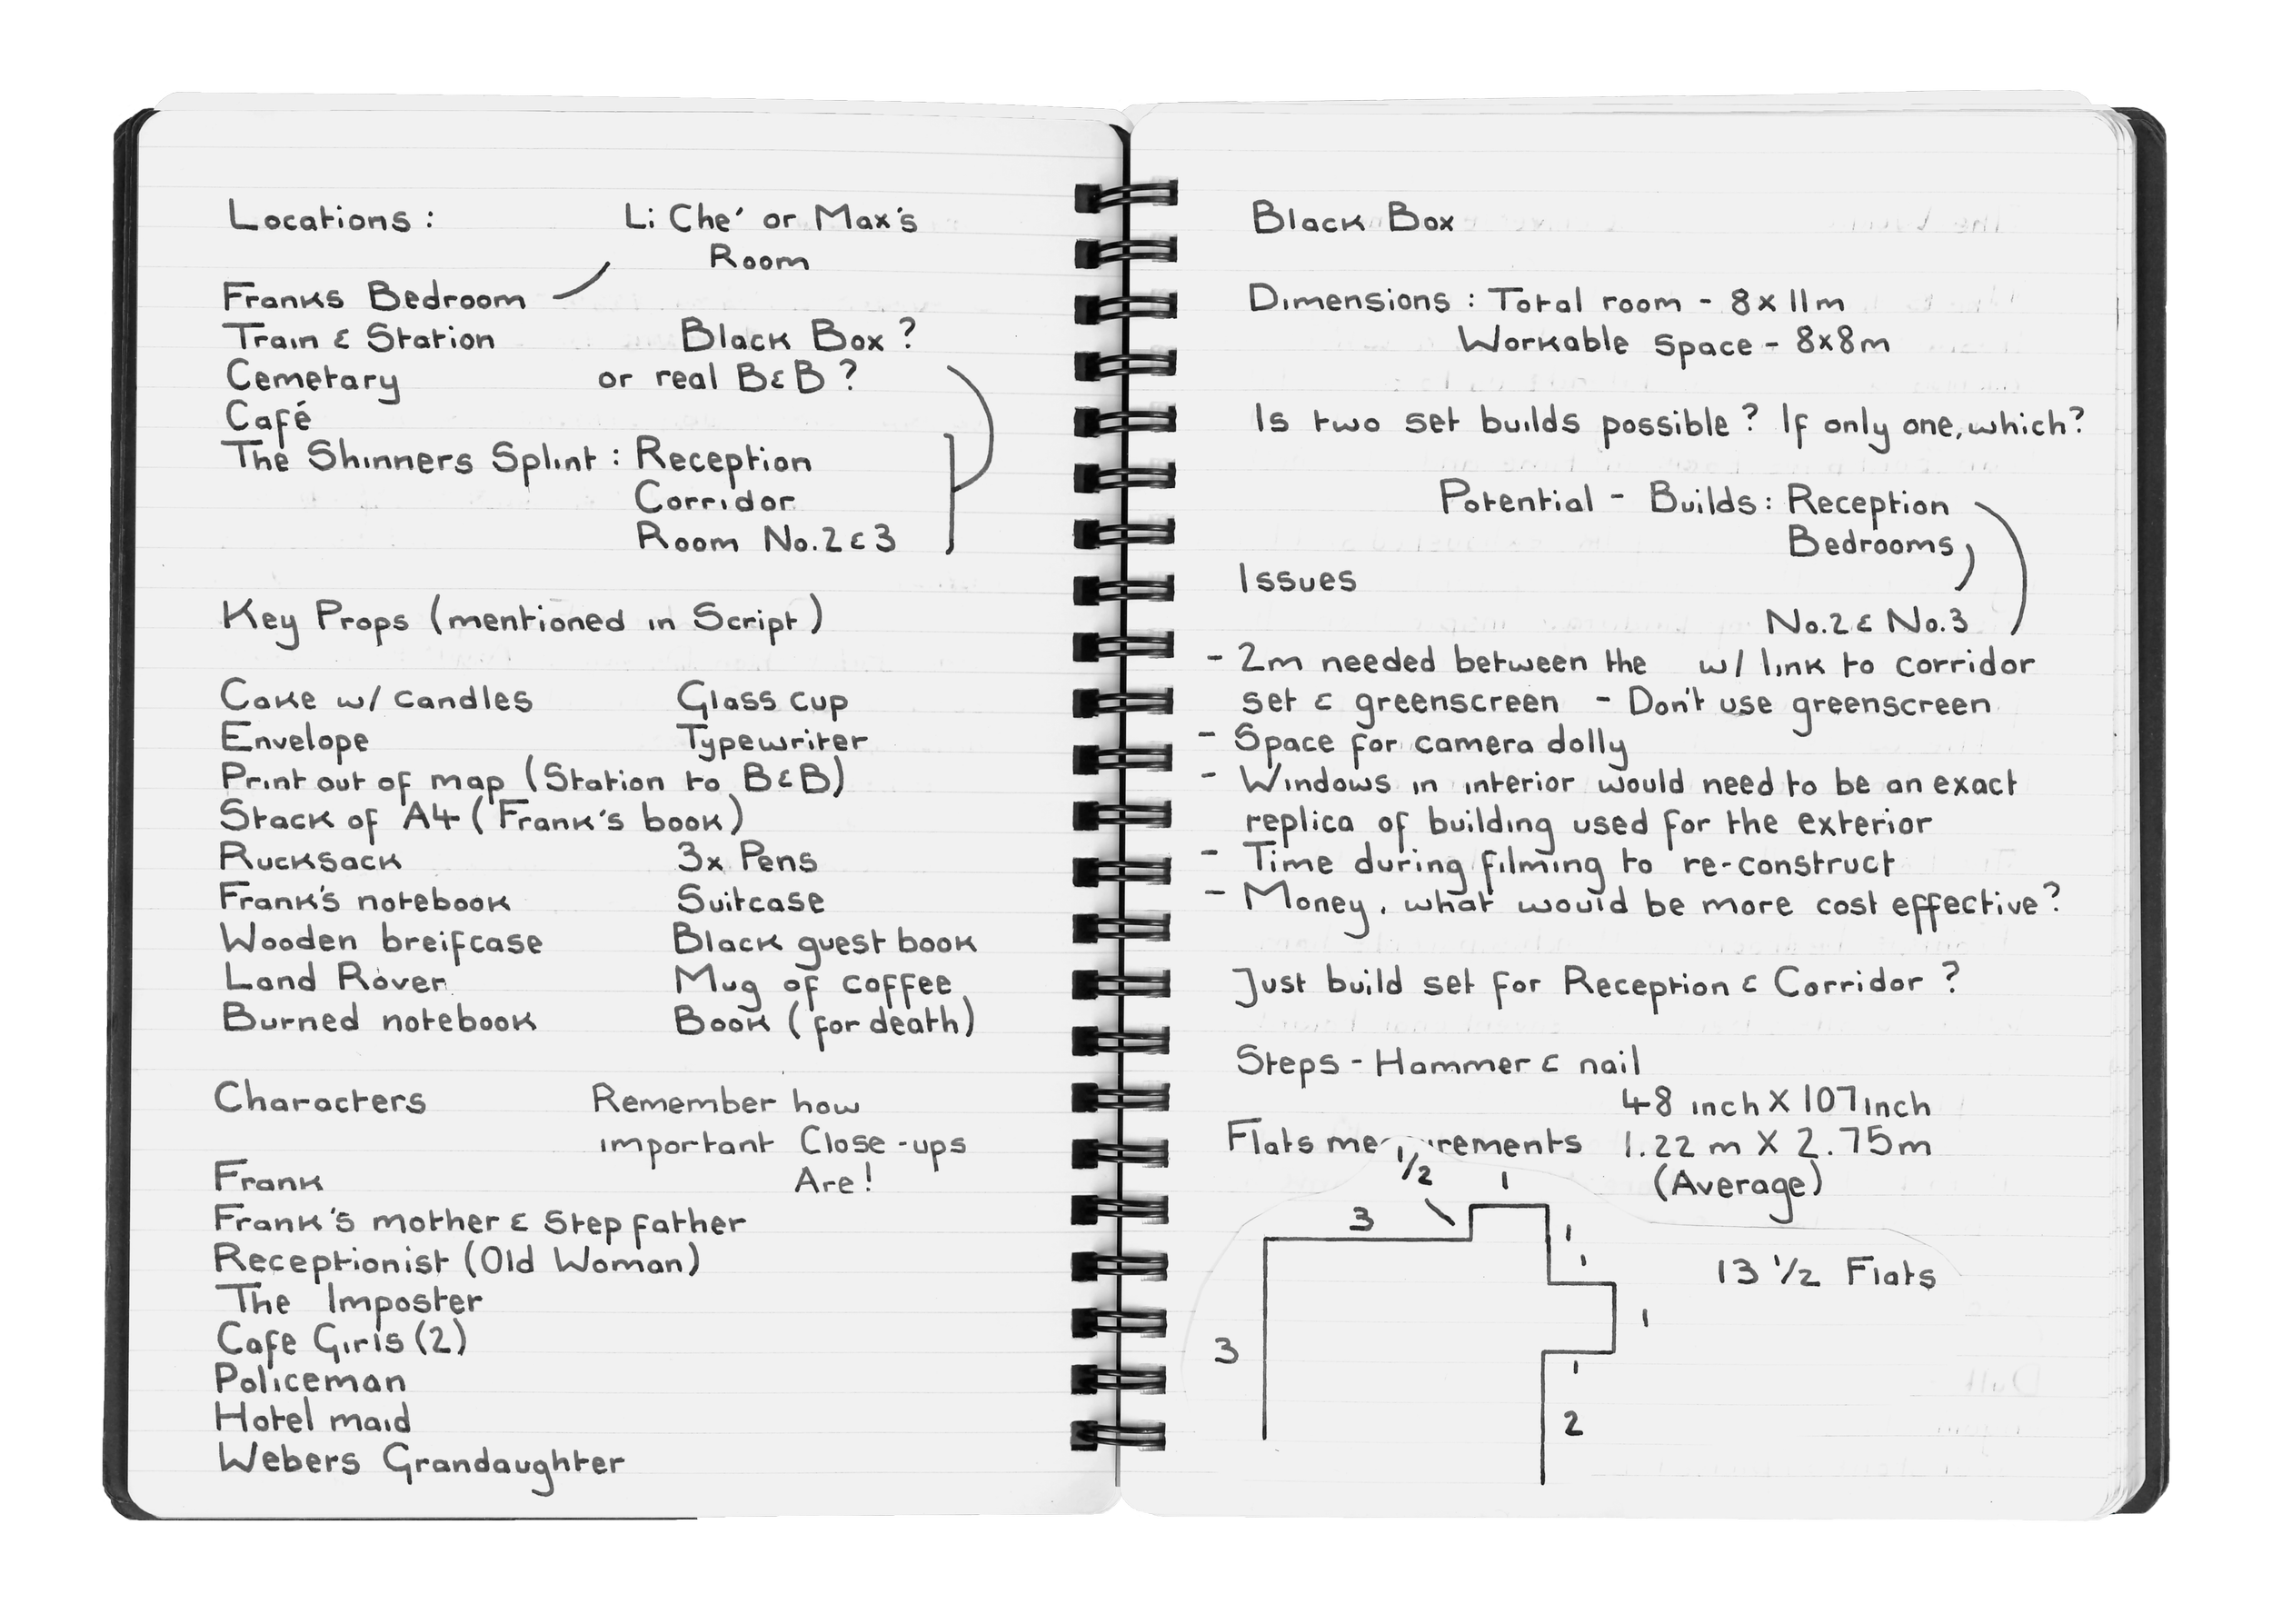 Locations :
Li Ché or Max's
Room
Franks Bedroom
Train & Station
Black Box ?
Cemetary
or real B&B ?
Café
The Shinners Splint : Reception
Corridor
Room No.2 & 3
Key Props (mentioned in Script)
Cake w/ candles
Glass cup
Envelope
Typewriter
Print out of map (Station to B&B)
Stack of A4 (Frank's book)
Rucksack
3x Pens
Frank's notebook
Suitcase
Wooden breifcase
Black guest book
Land Rover
Mug of coffee
Burned notebook
Book (for death)
Characters
Remember how
important Close-ups
Are!
Frank
Frank's mother & Step father
Receptionist (Old Woman)
The Imposter
Cafe Girls (2)
Policeman
Hotel maid
Webers Grandaughter
Black Box
Dimensions : Total room - 8 x 11m
Workable Space - 8x8m
Is two set builds possible ? If only one, which?
Potential - Builds : Reception
Bedrooms
No.2 & No.3
w/ link to corridor
- Don't use greenscreen
Issues
- 2m needed between the
set & greenscreen
- Space for camera dolly
- Windows in interior would need to be an exact
replica of building used for the exterior
- Time during filming to re-construct
- Money, what would be more cost effective?
Just build set for Reception & Corridor ?
Steps - Hammer & nail
48 inch X 107 inch
Flats me rements 1.22 m X 2.75m
(Average)
1/2
1
3
1
1
13 1/2 Flats
1
3
1
2